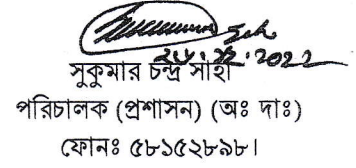 ২৮.১২.২০২২
সুকুমার চন্দ্র সাহা
পরিচালক (প্রশাসন) (অঃ দাঃ)
ফোনঃ ৫৮১৫২৮৯৮।